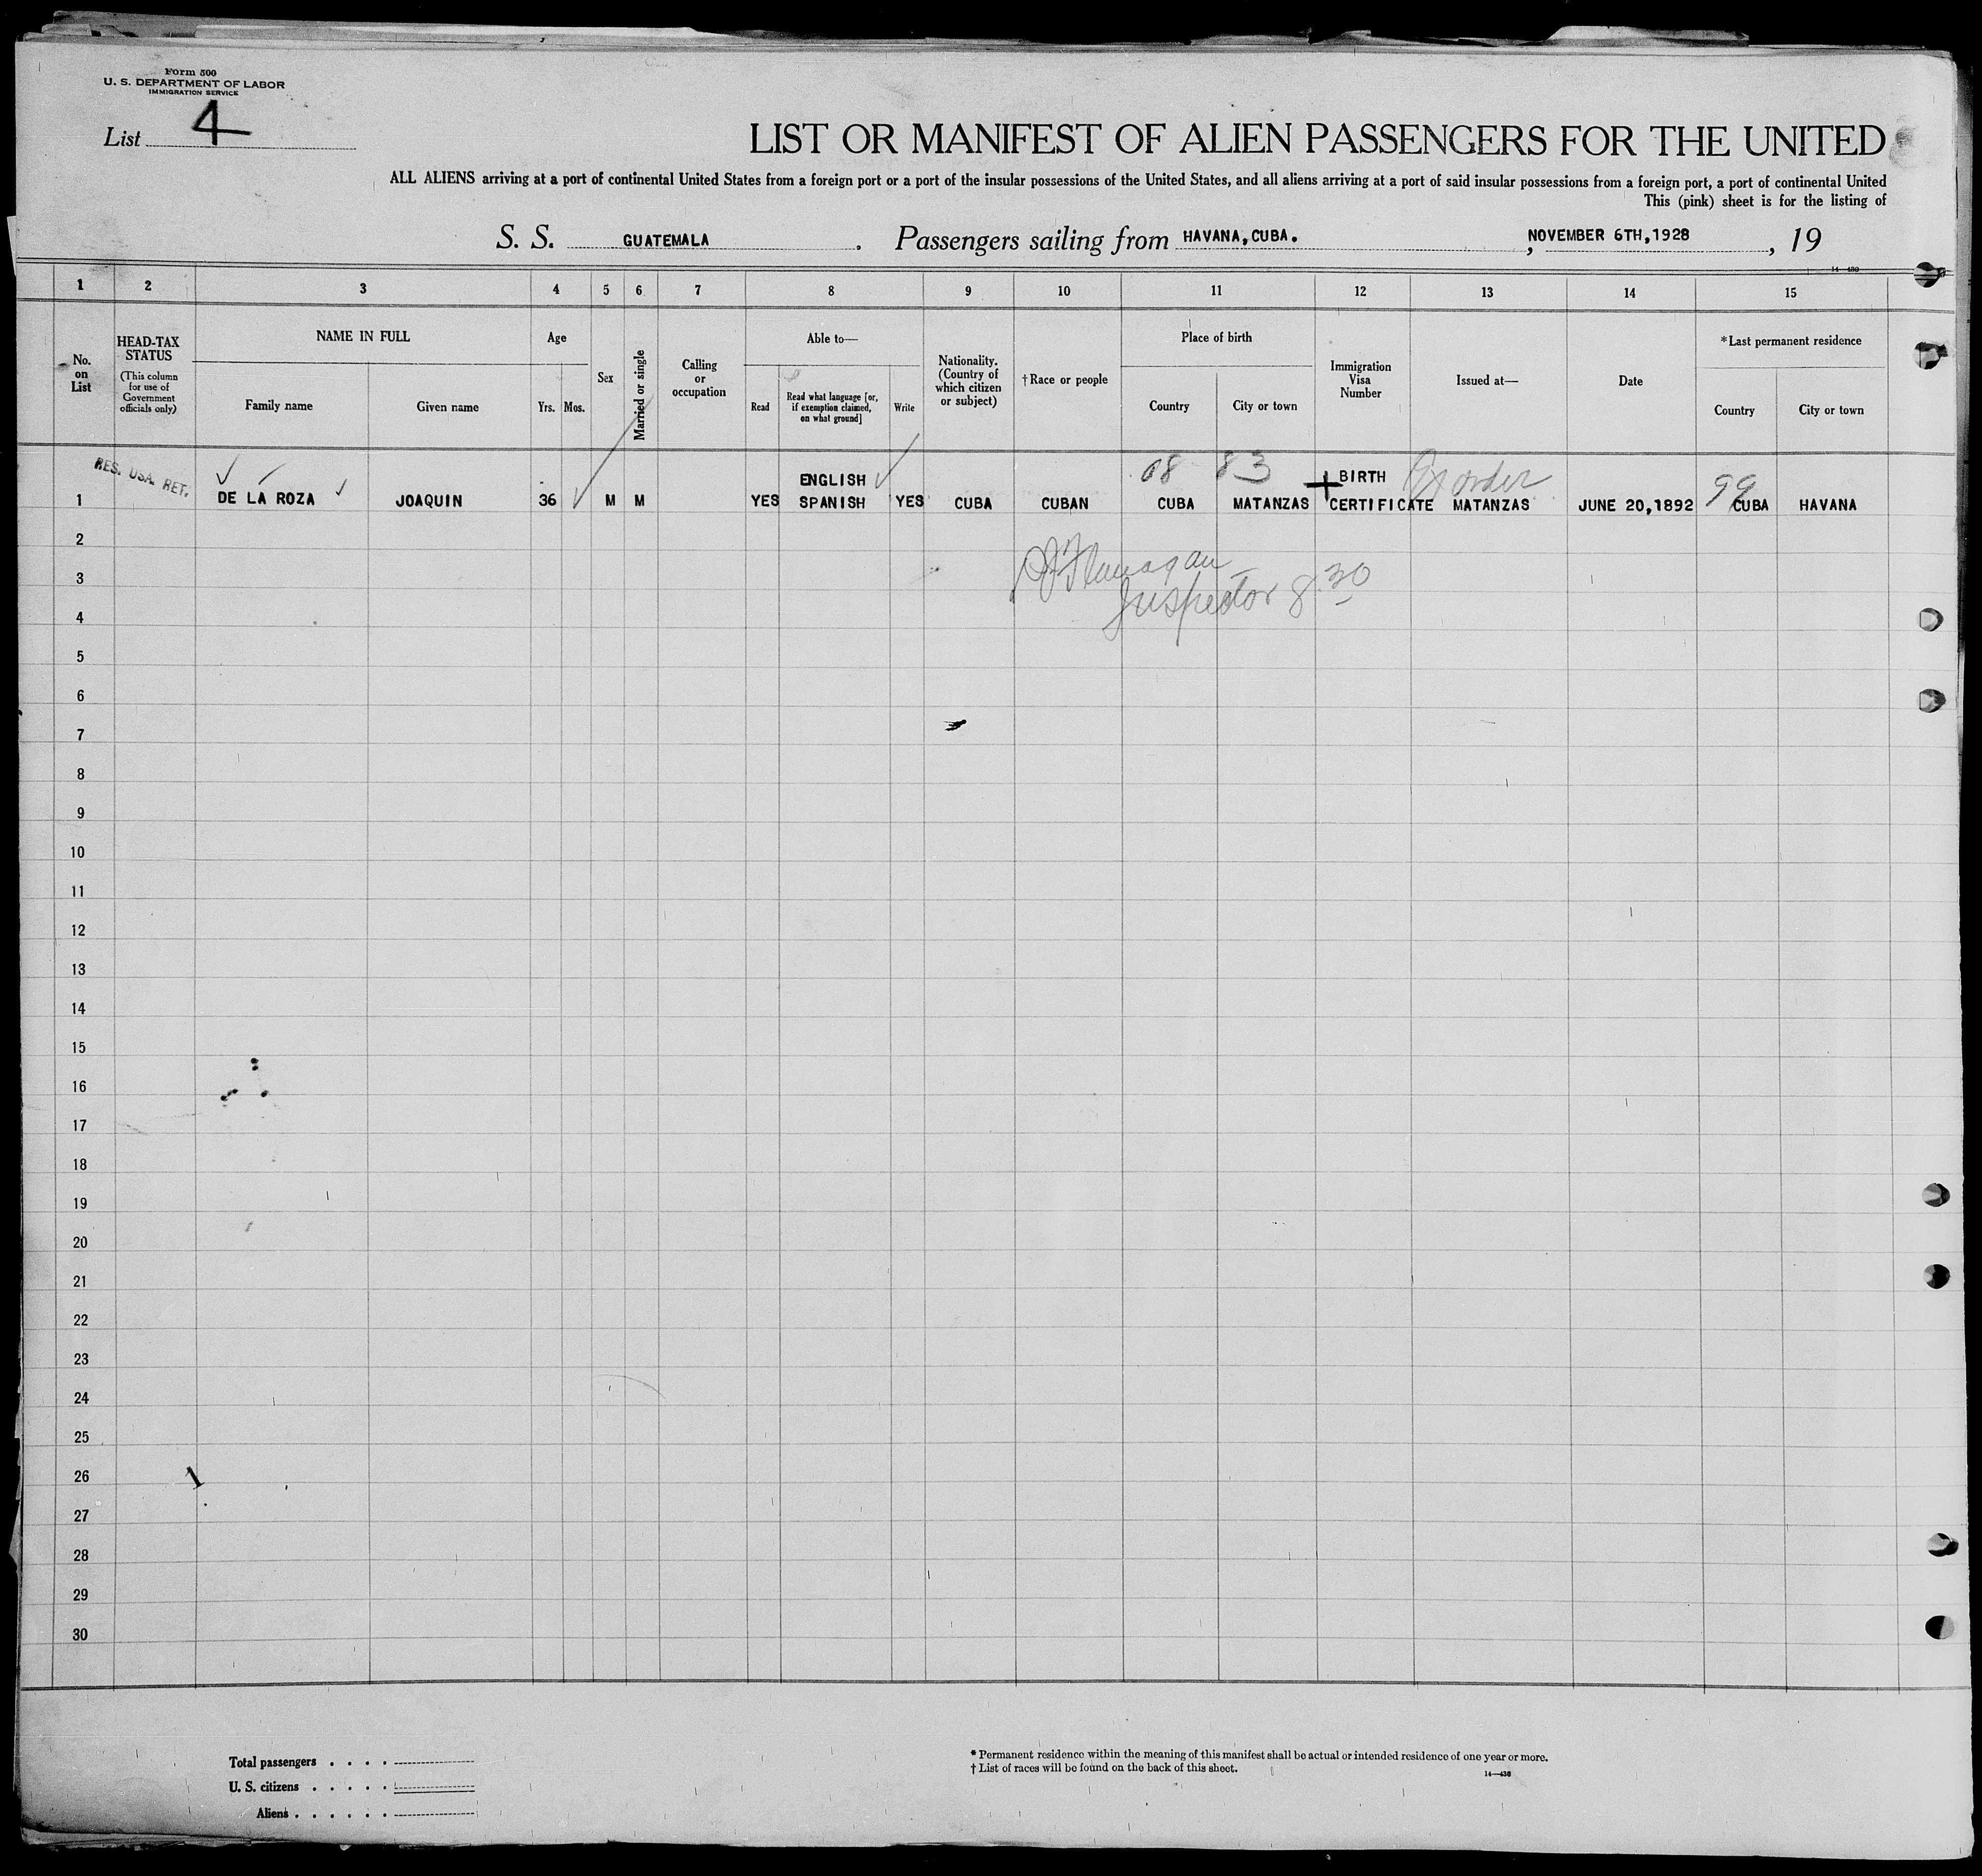 Form 500
U. S. DEPARTMENT OF LABOR
IMMIGRATION SERVICE
List 4
LIST OR MANIFEST OF ALIEN PASSENGERS FOR THE UNITED
ALL ALIENS arriving at a port of continental United States from a foreign port or a port of the insular possessions of the United States, and all aliens arriving at a port of said insular possessions from a foreign port, a port of continental United
This (pink) sheet is for the listing of
S. S. GUATEMALA . Passengers sailing from HAVANA, CUBA. , NOVEMBER 6TH, 1928 , 19
1 2 3 4 5 6 7 8 9 10 11 12 13 14 15
No. on List
HEAD-TAX STATUS
(This column for use of Government officials only)
NAME IN FULL
Family name
Given name
Age
Yrs. Mos.
Sex
Married or single
Calling or occupation
Able to—
Read
Read what language [or, if exemption claimed, on what ground]
Write
Nationality. (Country of which citizen or subject)
†Race or people
Place of birth
Country
City or town
Immigration Visa Number
Issued at—
Date
*Last permanent residence
Country
City or town
RES. USA. RET.
ENGLISH
08 83
BIRTH
order
99
1 DE LA ROZA JOAQUIN 36 M M YES SPANISH YES CUBA CUBAN CUBA MATANZAS CERTIFICATE MATANZAS JUNE 20,1892 CUBA HAVANA
2
Flanagan
3
Inspector 8 30
4
5
6
7
8
9
10
11
12
13
14
15
16
17
18
19
20
21
22
23
24
25
26
27
28
29
30
Total passengers . . . .
U. S. citizens . . . . .
Aliens . . . . . .
* Permanent residence within the meaning of this manifest shall be actual or intended residence of one year or more.
† List of races will be found on the back of this sheet.
14—430